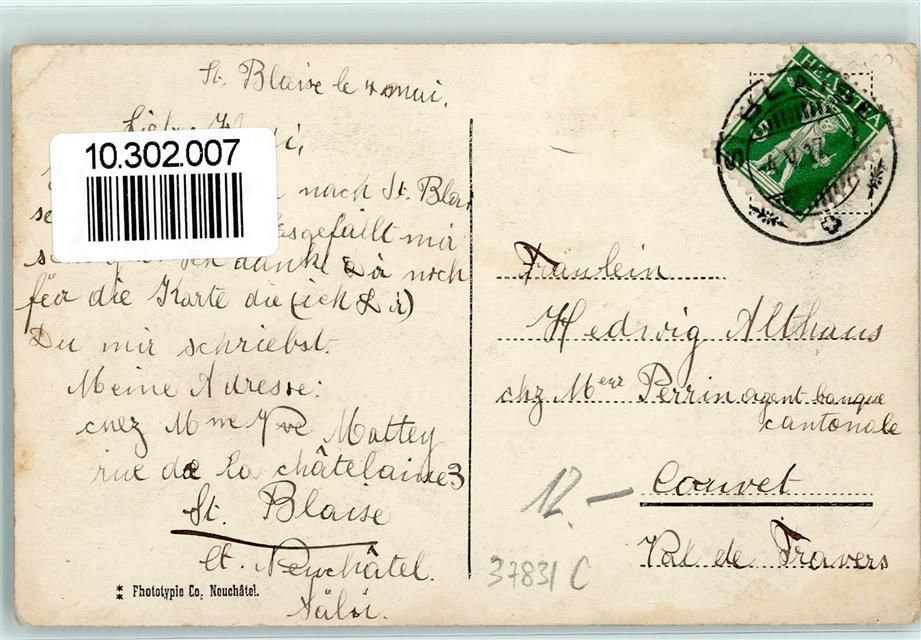 St. Blaise le 4 mai.
10.302.007
nach St. Blai
gefällt mir
danke Dir noch
für die Karte die (ich Dir)
Du mir schriebst.
Meine Adresse:
chez Mme Vve Mattey
rue de la châtelainie 3
St. Blaise
Ct. Neuchâtel.
Phototypie Co, Neuchâtel.
HELVETIA
ST BLAISE
4. V. 17
Fräulein
Hedwig Althaus
chz Meur Perrin agent banque
cantonale
Couvet
Val de Travers
12.-
37831 C